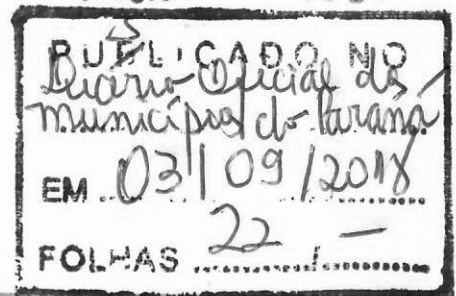 PUBLICADO NO
Diário Oficial dos
municípios do Paraná
EM 03/09/2018
FOLHAS 22 —